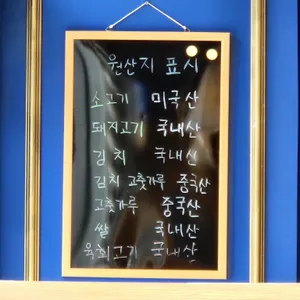 원산지 표시
소고기 미국산
돼지고기 국내산
김치 국내산
김치 고춧가루 중국산
고춧가루 중국산
쌀 국내산
육회고기 국내산